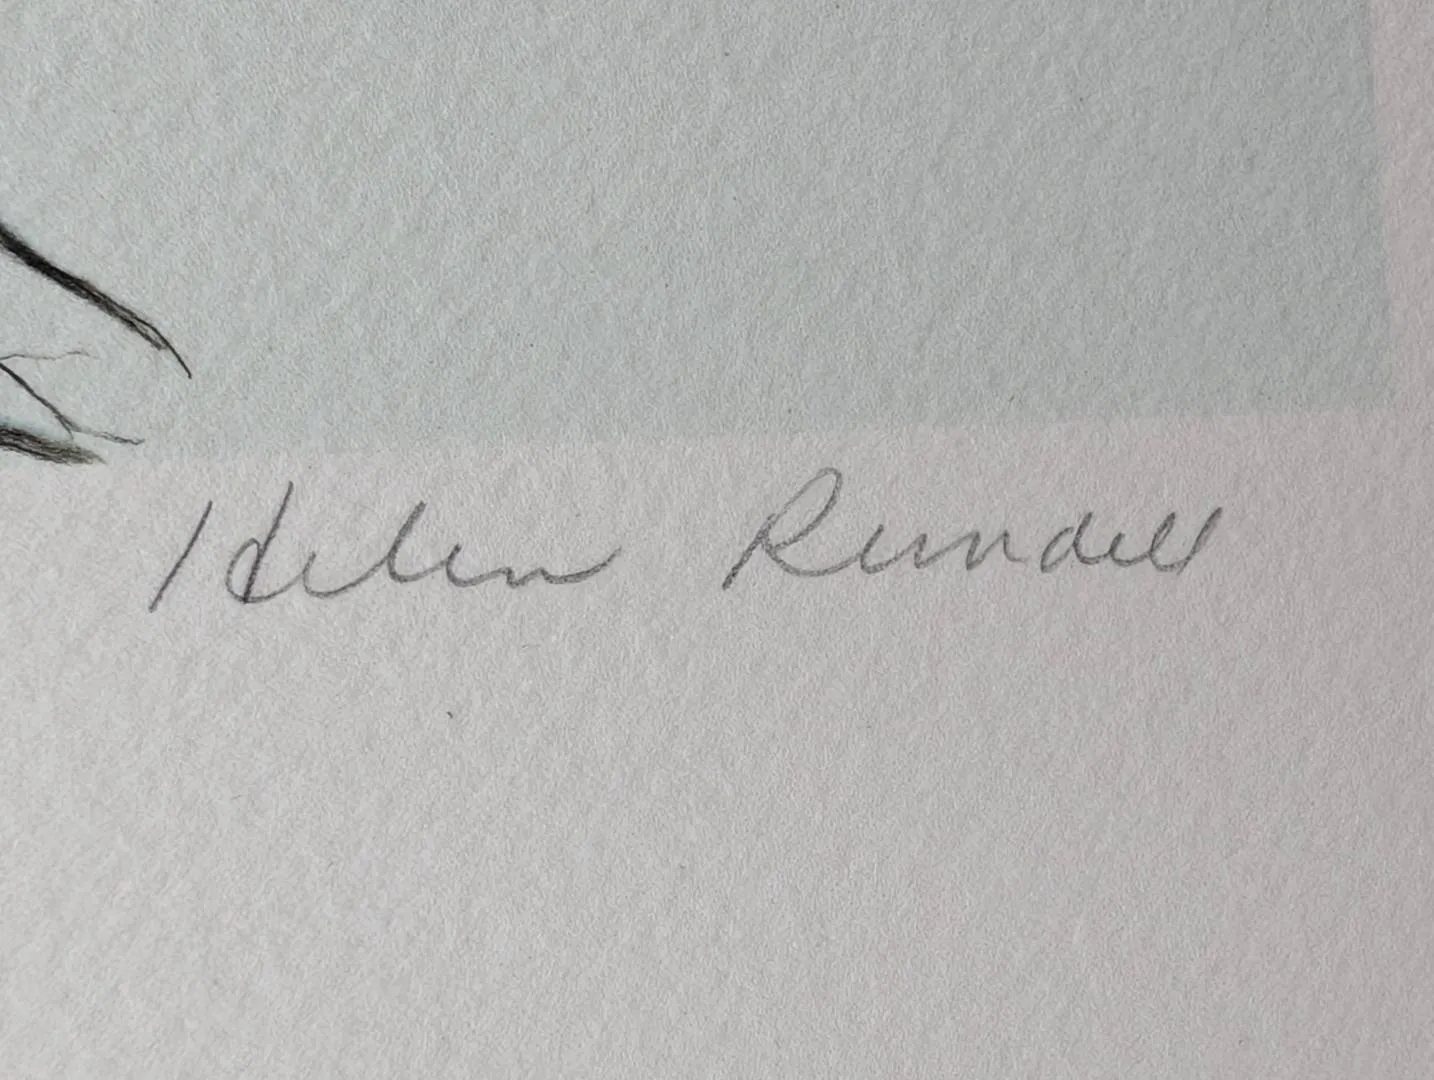 Helen Rundell